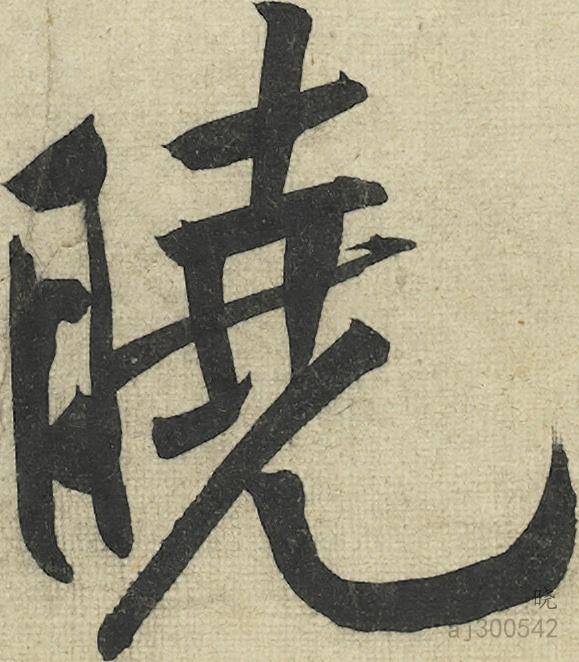 曉
晓
aj300542